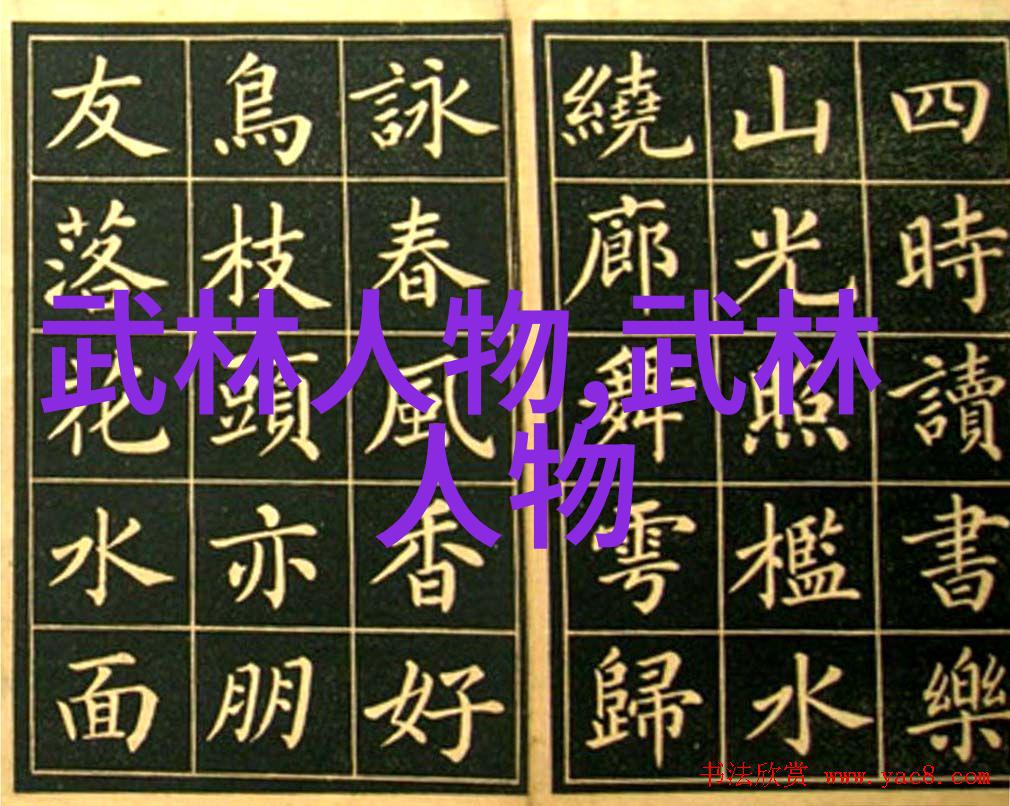 四時讀書樂
山光照檻水
繞廊舞雩歸
詠春風香好
鳥枝頭亦朋
友落花水面
武林人物,武林
人物
书法欣赏 www.yac8.com